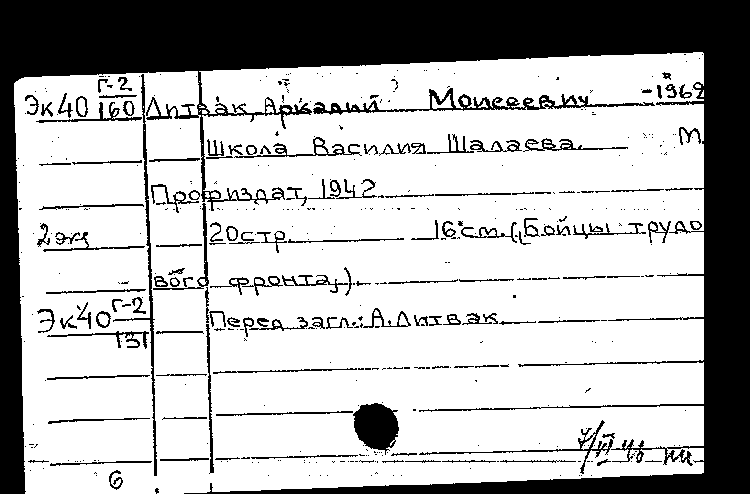 Эк40 Г-2/160 Литвак, Аркадий Моисеевич -1962
Школа Василия Шалаева. М.
Профиздат, 1942
2 экз 20стр. 16 см. („Бойцы трудо
вого фронта„).
Эк40 Г-2/131 Перед загл.: А. Литвак.
7/VI 46
6